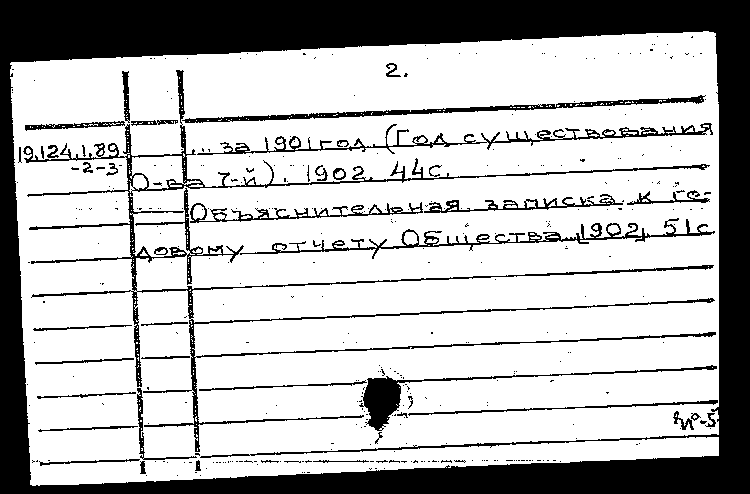 2.
19.124.1.89. ... за 1901 год. (Год существования
-2-3 О-ва 7-й). 1902. 44с.
Объяснительная записка к го-
довому отчету Общества 1902, 51с
№-5